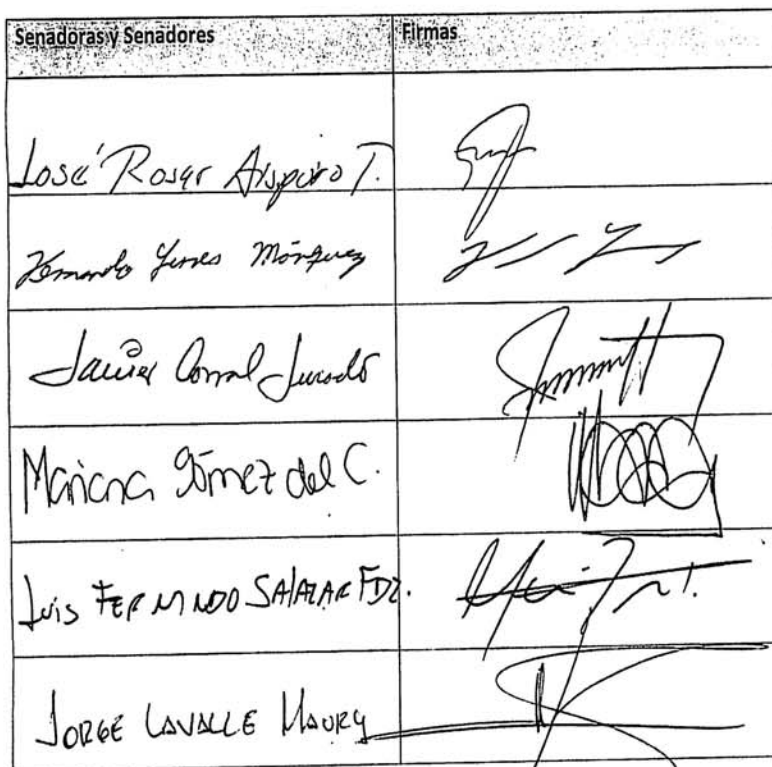 Senadoras y Senadores
Firmas
José Rosas Aispuro T.
Fernando Yunes Márquez
Javier Corral Jurado
Mariana Gómez del C.
Luis FERNANDO SALAZAR FDZ.
JORGE LAVALLE MAURY